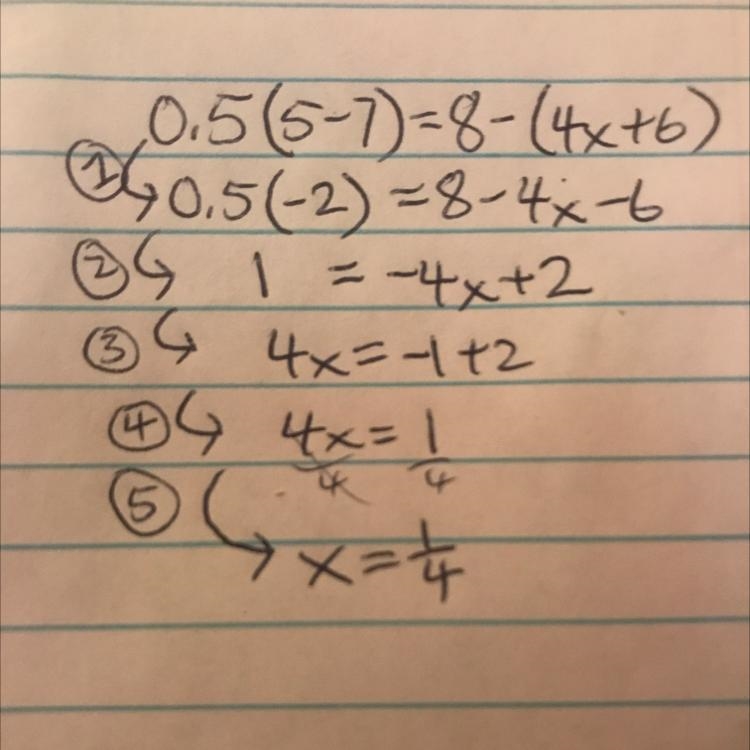 0.5(5-7)=8-(4x+6)
① 0.5(-2)=8-4x-6
② 1 = -4x+2
③ 4x=-1+2
④ 4x/4 = 1/4
⑤ x=1/4